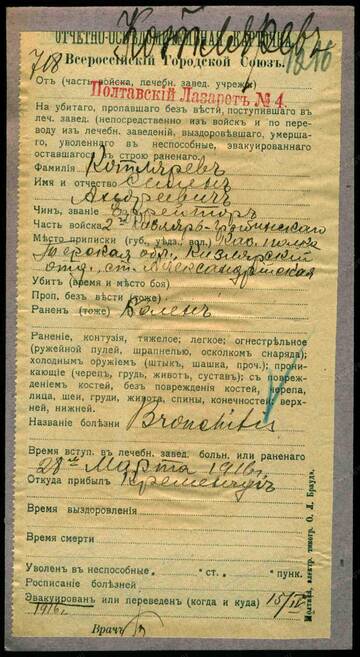 Котляревъ
ОТЧЕТНО-ОСВѢДОМИТЕЛЬНАЯ КАРТОЧКА
708
Всероссійскій Городской Союзъ.
Отъ (часть войска, лечебн. завед. учрежд.
Полтавскій Лазаретъ № 4.
На убитаго, пропавшаго безъ вѣсти, поступившаго въ
леч. завед. (непосредственно изъ войскъ и по пере-
воду изъ лечебн. заведеній, выздоровѣвшаго, умерша-
го, уволеннаго въ неспособные, эвакуированнаго
оставшагося въ строю раненаго.
Фамилія Котляревъ
Имя и отчество Семенъ
Андреевичъ
Чинъ, званіе Ефрейторъ
Часть войска 2й Кизляръ-Гребенскаго
Мѣсто приписки (губ., уѣзд., вол.) Каз. полка
Терская обл., Кизлярскій
отд., ст. Александрійская
Убитъ (время и мѣсто боя)
Проп. безъ вѣсти (тоже)
Раненъ (тоже) Боленъ
Раненіе, контузія, тяжелое; легкое; огнестрѣльное
(ружейной пулей, шрапнелью, осколкомъ снаряда);
холоднымъ оружіемъ (штыкъ, шашка, проч.); прони-
кающіе (черепъ, грудь, животъ, суставъ); съ поврежде-
ніемъ костей, безъ поврежденія костей, черепа,
лица, шеи, груди, живота, спины, конечностей; верх-
ней, нижней.
Названіе болѣзни Bronchitis
Время вступ. въ лечебн. завед. больн. или раненаго
28го Марта 1916 г.
Откуда прибылъ Кременчугъ
Время выздоровленія
Время смерти
Уволенъ въ неспособные. ст. пунк.
Росписаніе болѣзней
Эвакуированъ или переведенъ (когда и куда) 15/IV
1916 г.
Врачъ
Полтава, электр. типогр. О. Л. Брауда.